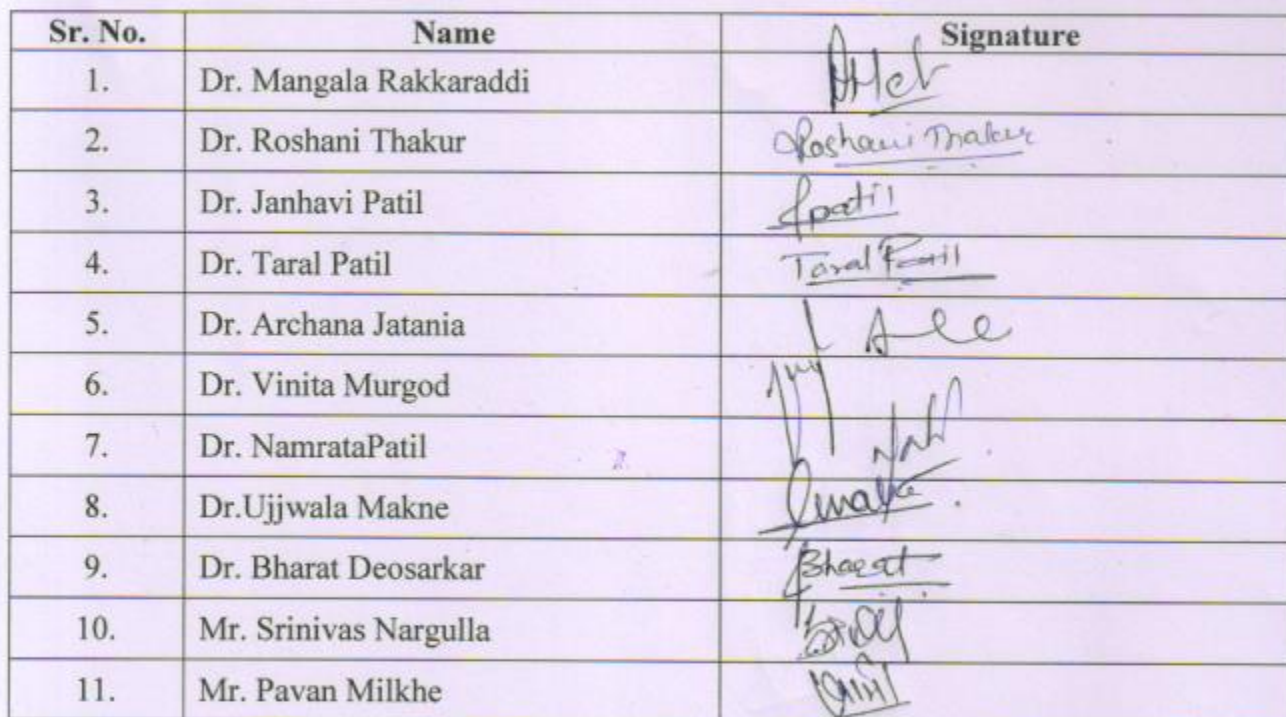 Sr. No. Name Signature
1. Dr. Mangala Rakkaraddi
2. Dr. Roshani Thakur Roshani Thakur
3. Dr. Janhavi Patil Jpatil
4. Dr. Taral Patil Taral Patil
5. Dr. Archana Jatania
6. Dr. Vinita Murgod
7. Dr. NamrataPatil
8. Dr.Ujjwala Makne
9. Dr. Bharat Deosarkar Bharat
10. Mr. Srinivas Nargulla
11. Mr. Pavan Milkhe